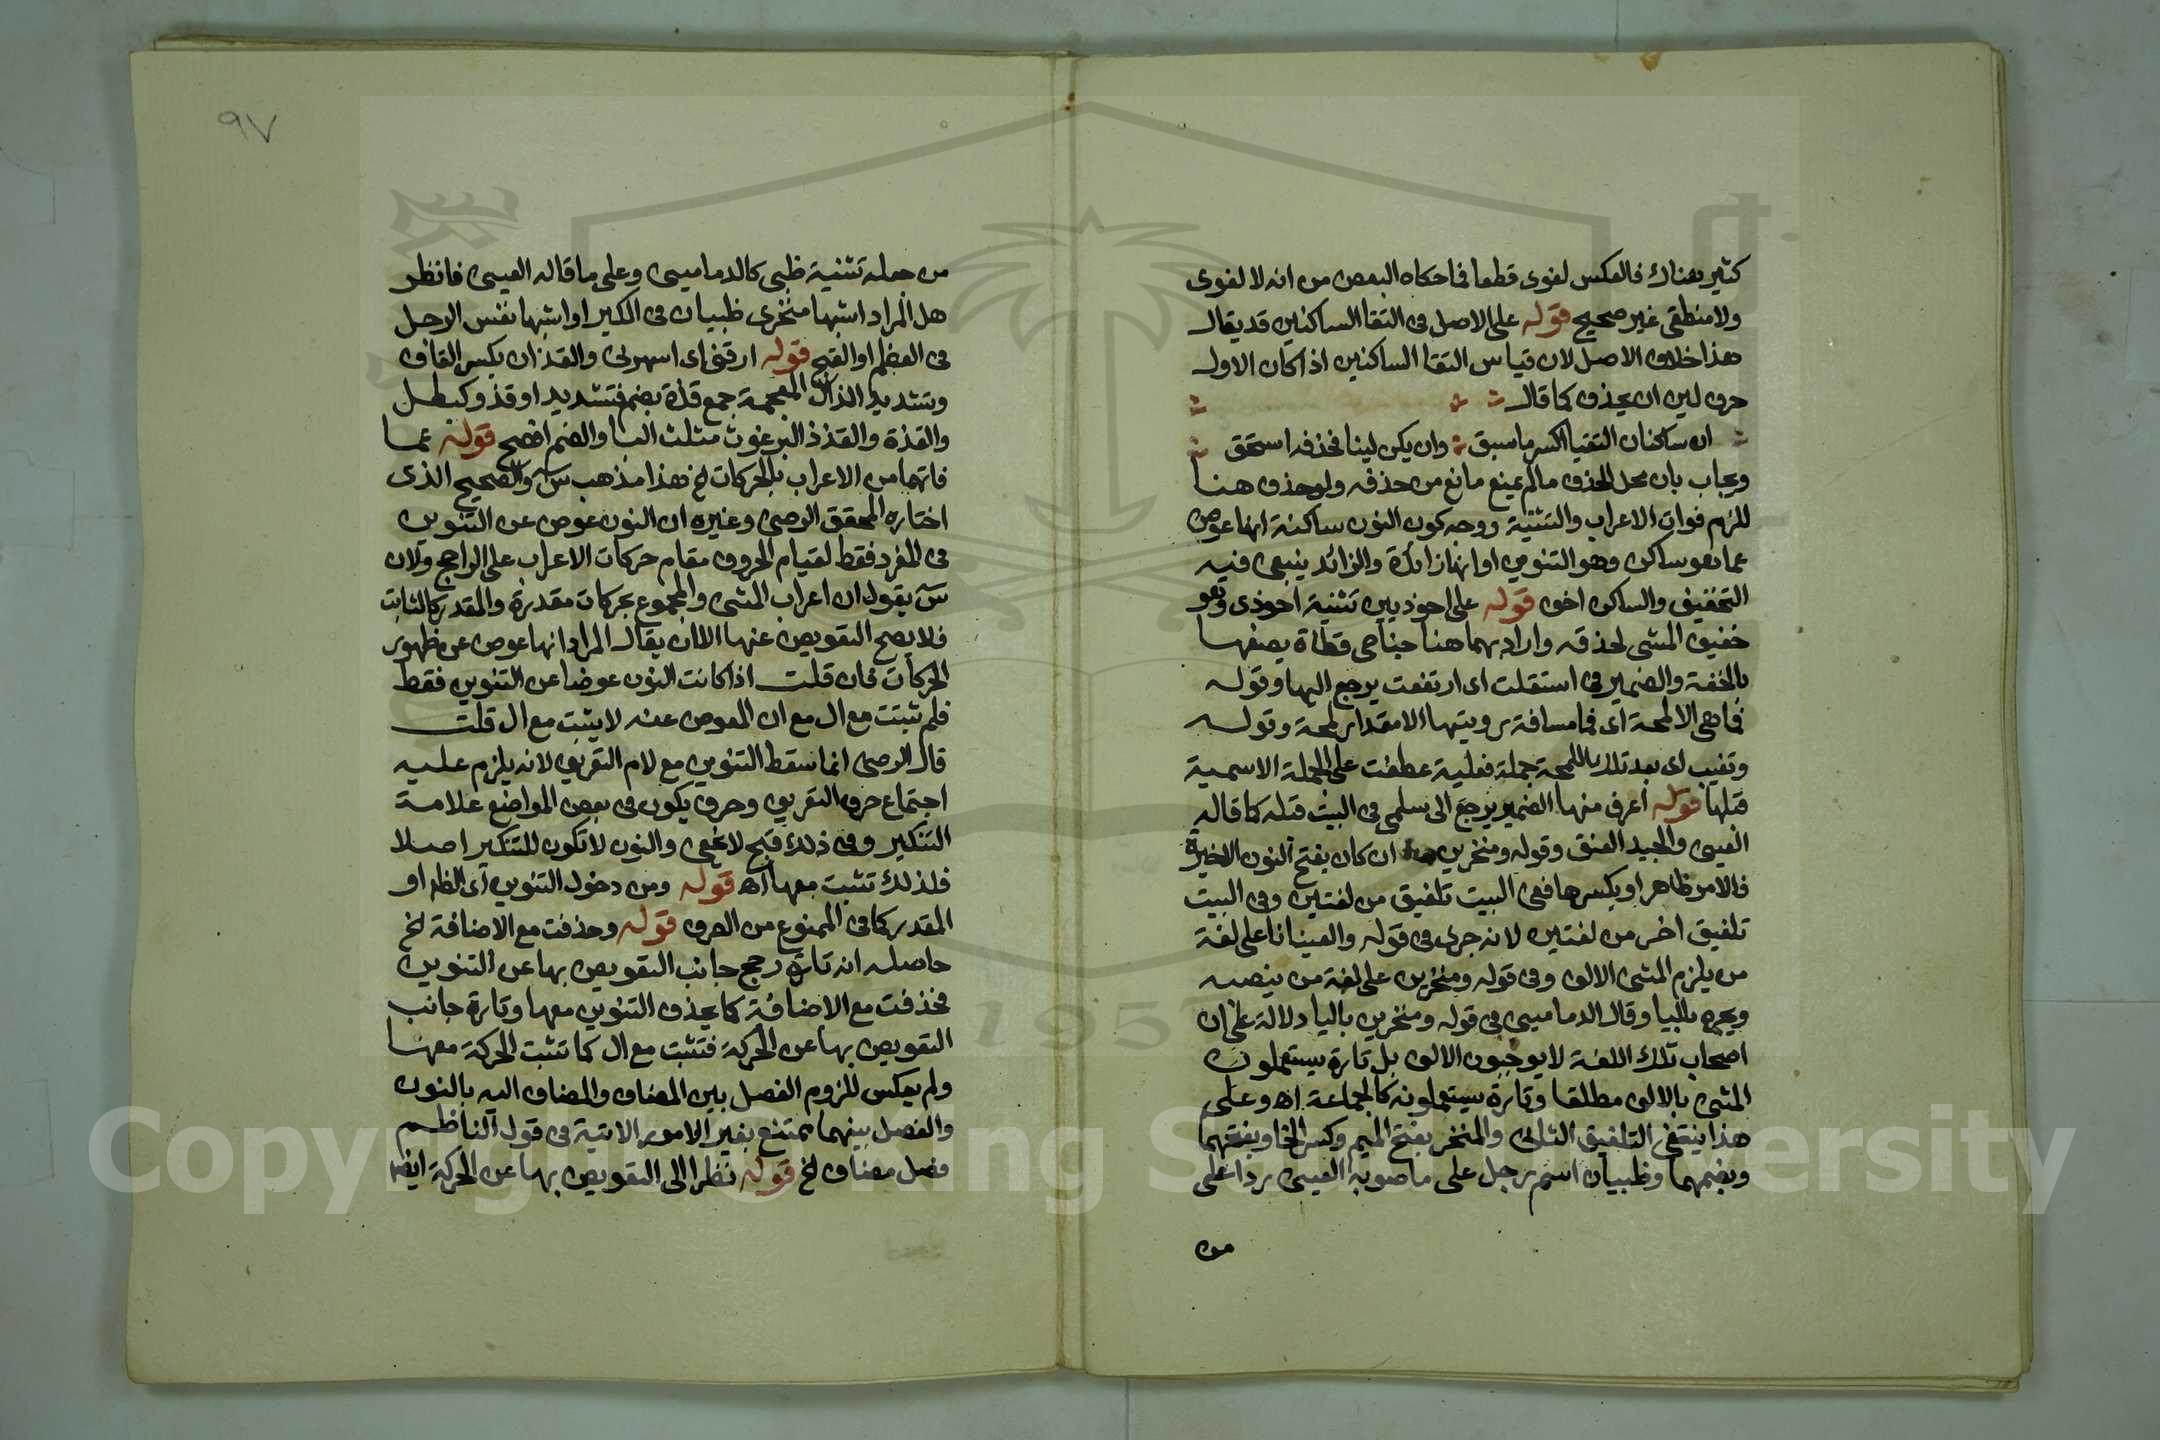 كثير هناك فالعكس لغوى قطعا فما حكاه البعض من انه لا لغوى
ولا منطقى غير صحيح قوله على الاصل فى التقا الساكنين قد يقال
هذا خلاف الاصل لان قياس التقا الساكنين اذا كان الاول
حرف لين ان يحذف كما قال
ان ساكنان التقيا اكسر ما سبق وان يكن لينا فحذفه استحق
ويجاب بان محل الحذف مالم يمنع مانع من حذفه ولو حذف هنا
للزم فوات الاعراب والتثنية ووجه كون النون ساكنة انها عوض
عما هو ساكن وهو التنوين او انها زائدة والزائد ينبغى فيه
التخفيف والساكن اخف قوله على احوذيين تثنية احوذى وهو
خفيف المشى لحذقه واراد بهما هنا جناحى قطاة يصفها
بالخفة والضمير فى استقلت اى ارتفعت يرجع اليها وقوله
فما هى الا لمحة اى فما مسافة رويتها الا مقدار لمحة وقوله
وتغيب اى بعد تلك اللمحة جملة فعلية عطفت على الجملة الاسمية
قبلها قوله اعرف منها الضمير يرجع الى سلمى فى البيت قبله كما قاله
العينى والجيد العنق وقوله ومنخرين ان كان بفتح النون الاخيرة
فالامر ظاهر او بكسرها ففى البيت تلفيق من لغتين وفى البيت
تلفيق اخر من لغتين لانه جرى فى قوله والعينانا على لغة
من يلزم المثنى الالف وفى قوله ومنخرين على لغة من ينصبه
ويجره باليا وقال الدمامينى فى قوله ومنخرين باليا دلالة على ان
اصحاب تلك اللغة لا يوجبون الالف بل تارة يستعملون
المثنى بالالف مطلقا وتارة يستعملونه كالجماعة اه وعلى
هذا ينتفى التلفيق الثانى والمنخر بفتح الميم وكسر الخا وبفتحهما
وبضمهما وظبيان اسم رجل على ما صوبه العينى ردا على
من
٩٧
من جعله تثنية ظبى كالدمامينى وعلى ما قاله العينى فانظر
هل المراد اشبها منخرى ظبيان فى الكبر او اشبها نفس الرجل
فى العظم او القبح قوله ارقنى اى اسهرنى والقذان بكسر القاف
وتشديد الذال المعجمة جمع قذة بضم فتشديد او قذذ كبطل
والقذة والقذذ البرغوث مثلث البا والضم افصح قوله عما
فاتهما من الاعراب بالحركات الخ هذا مذهب س والصحيح الذى
اختاره المحقق الرضى وغيره ان النون عوض عن التنوين
فى المفرد فقط لقيام الحروف مقام حركات الاعراب على الراجح ولان
س يقول ان اعراب المثنى والمجموع بحركات مقدرة والمقدر كالثابت
فلا يصح التعويض عنها الا ان يقال المراد انها عوض عن ظهور
الحركات فان قلت اذا كانت النون عوضا عن التنوين فقط
فلم ثبتت مع ال مع ان المعوض عنه لا يثبت مع ال قلت
قال الرضى انما سقط التنوين مع لام التعريف لانه يلزم عليه
اجتماع حرف التعريف وحرف يكون فى بعض المواضع علامة
التنكير وفى ذلك قبح لا يخفى والنون لا تكون للتنكير اصلا
فلذلك تثبت معها اه قوله ومن دخول التنوين اى الظاهر او
المقدر كما فى الممنوع من الصرف قوله وحذفت مع الاضافة الخ
حاصله انه تارة رجح جانب التعويض بها عن التنوين
فحذفت مع الاضافة كما يحذف التنوين معها وتارة جانب
التعويض بها عن الحركة فتثبت مع ال كما تثبت الحركة معها
ولم يعكس للزوم الفصل بين المضاف والمضاف اليه بالنون
والفصل بينهما ممتنع بغير الامور الاتية فى قول الناظم
فصل مضاف الخ قوله نظرا الى التعويض بها عن الحركة ايضا
1957
Copyright © King Saud University